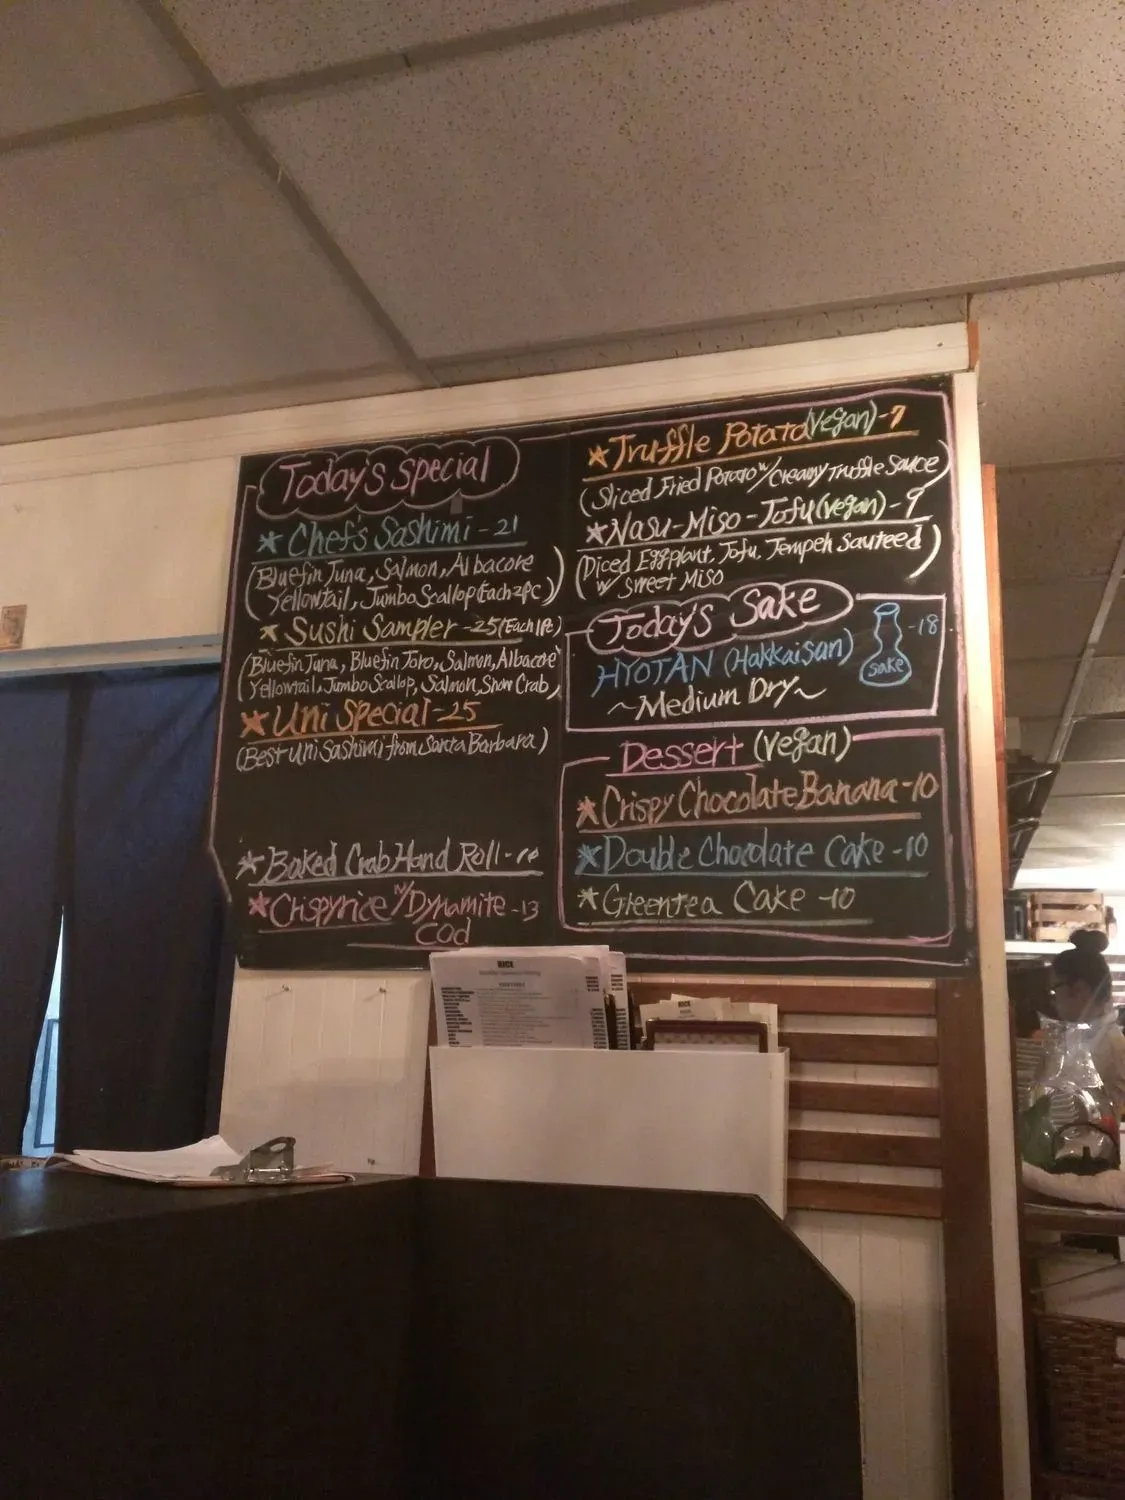 Today's Special
★ Chef's Sashimi - 21
(Bluefin Tuna, Salmon, Albacore
Yellowtail, Jumbo Scallop (Each 2pc))
★ Sushi Sampler - 25 (Each 1pc)
(Bluefin Tuna, Bluefin Toro, Salmon, Albacore
Yellowtail, Jumbo Scallop, Salmon, Snow Crab)
★ Uni Special - 25
(Best Uni Sashimi from Santa Barbara)
★ Baked Crab Hand Roll -
★ Crispyrice w/ Dynamite - 13
Cod
★ Truffle Potato (Vegan) - 7
(Sliced Fried Potato w/ Creamy Truffle Sauce)
★ Nasu-Miso-Tofu (Vegan) - 9
(Diced Eggplant, Tofu, Tempeh Sauteed
w/ Sweet Miso)
Today's Sake
HYOTAN (Hakkaisan)
sake
- 18
~Medium Dry~
Dessert (Vegan)
★ Crispy Chocolate Banana - 10
★ Double Chocolate Cake - 10
★ Greentea Cake - 10
RICE